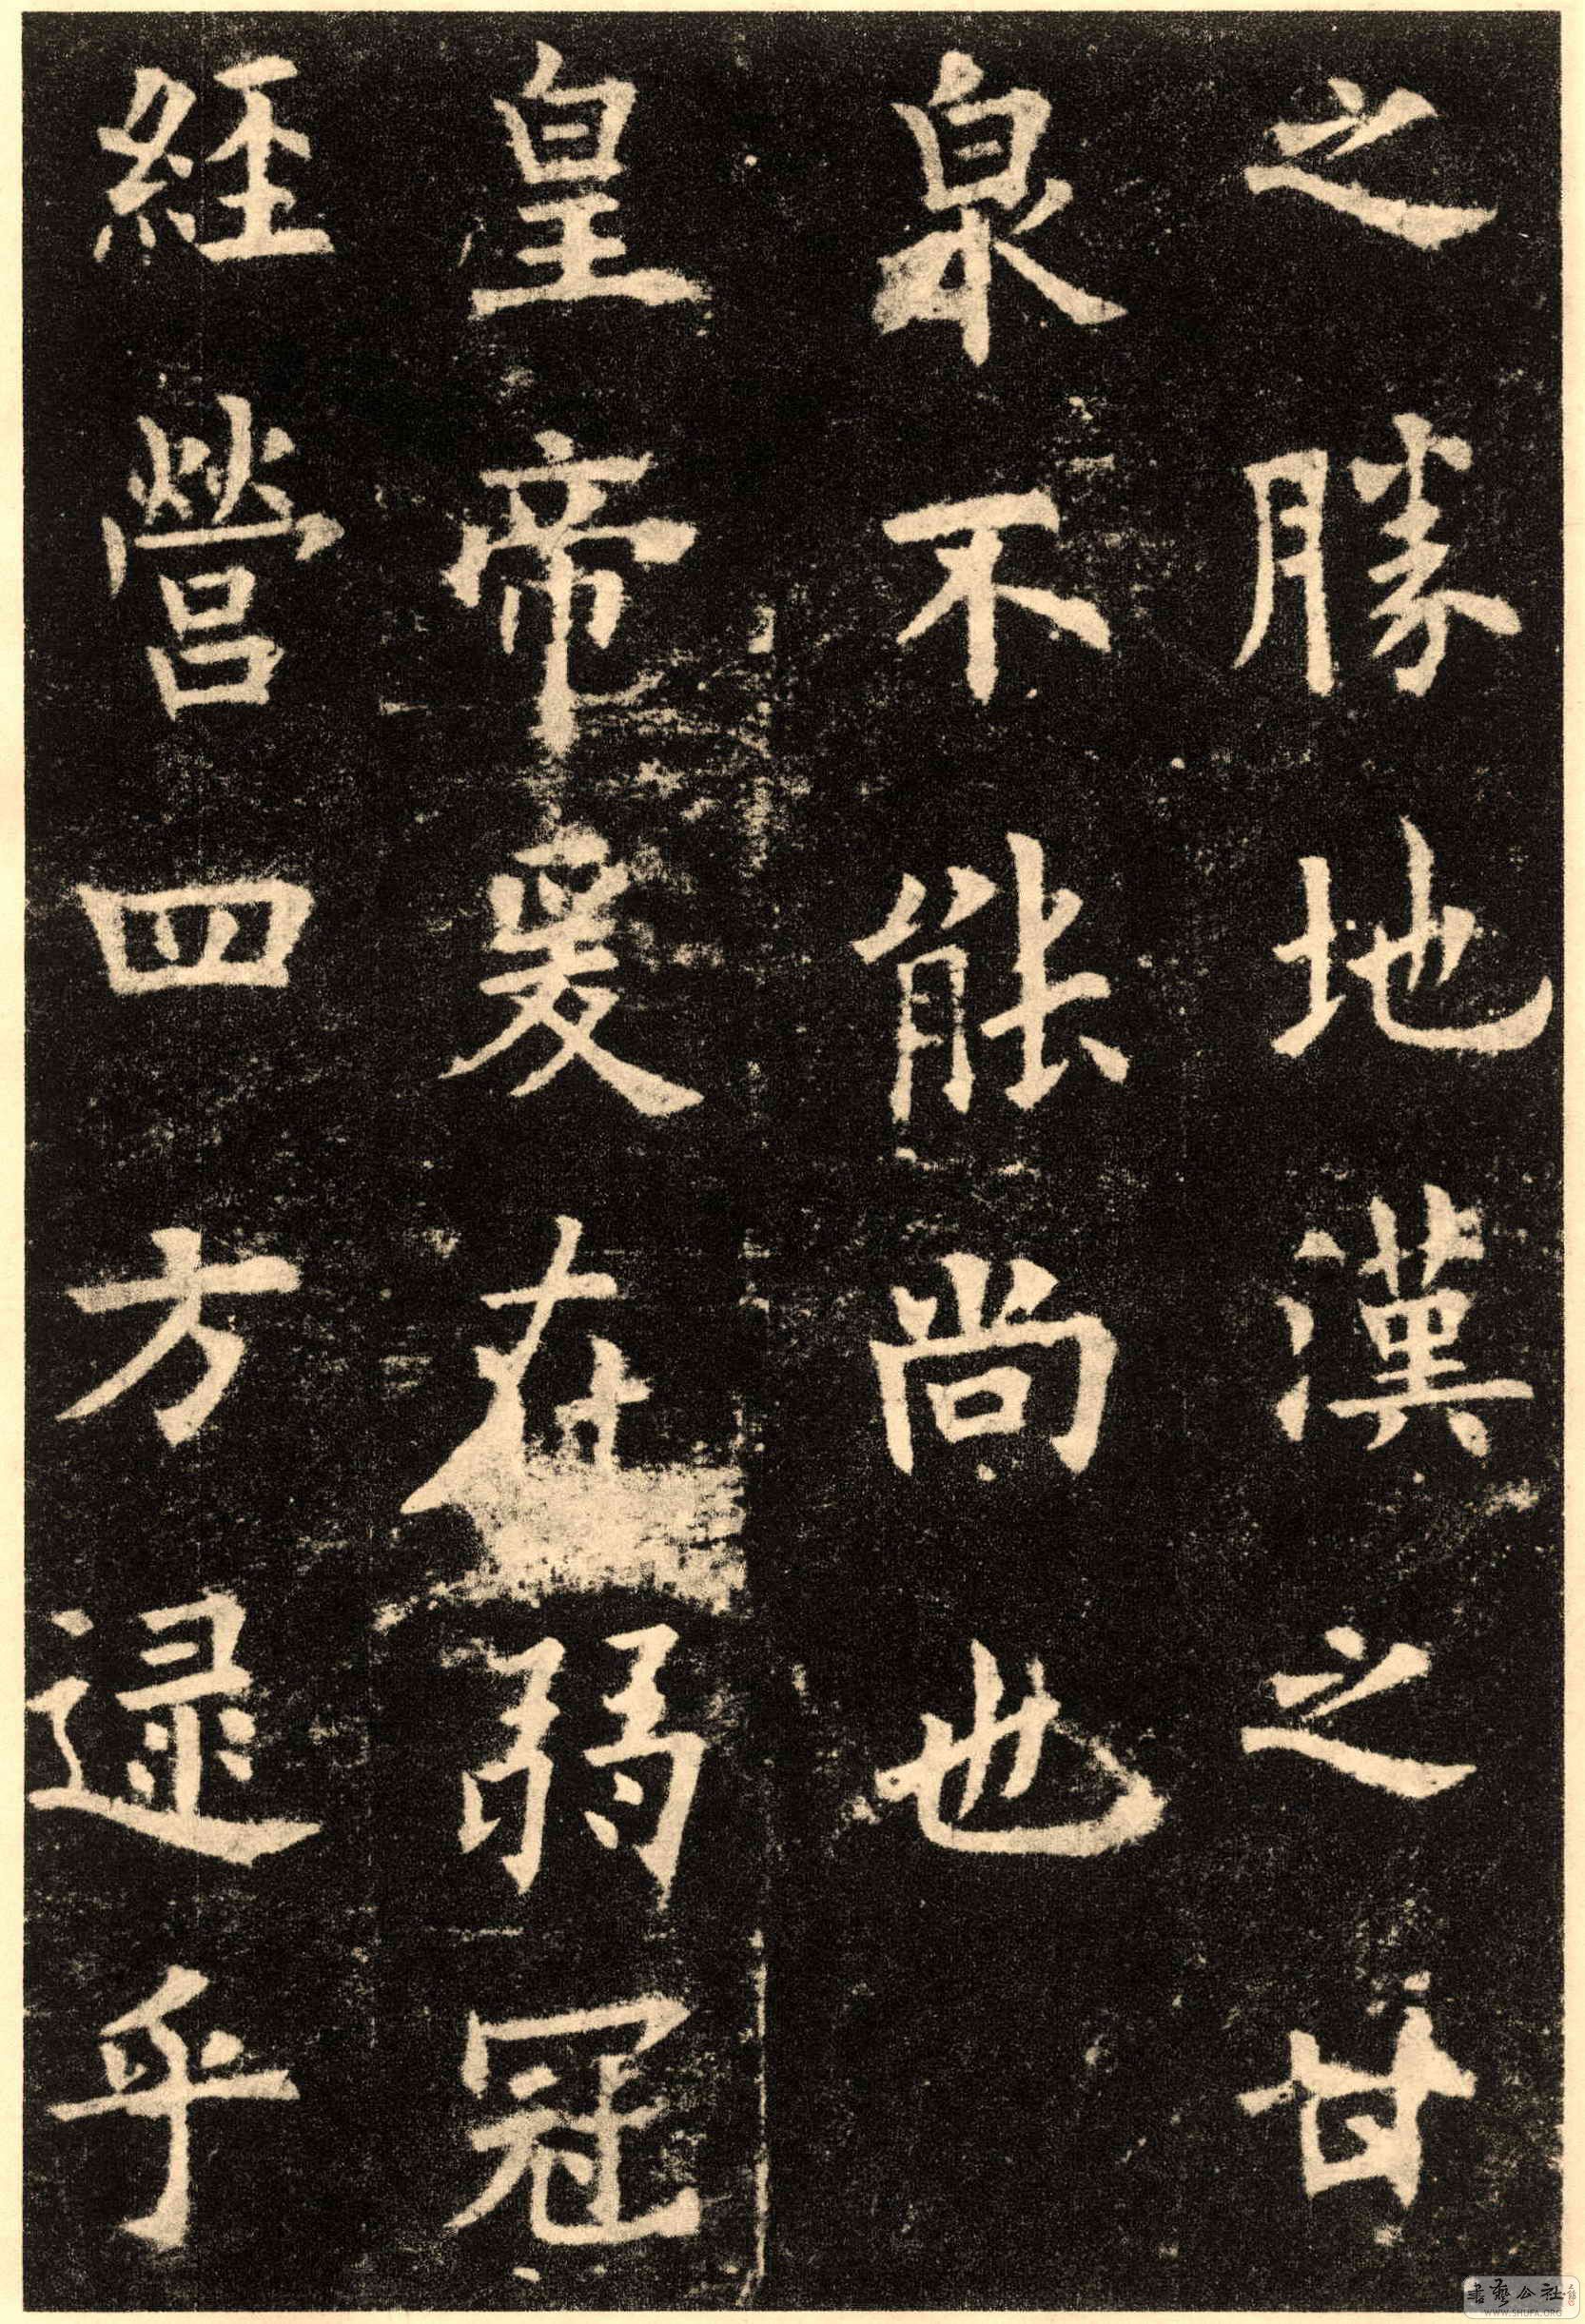 之勝地漢之甘
泉不能尚也
皇帝爰在弱冠
經營四方逯乎
書藝公社
WWW.SHUFA.ORG